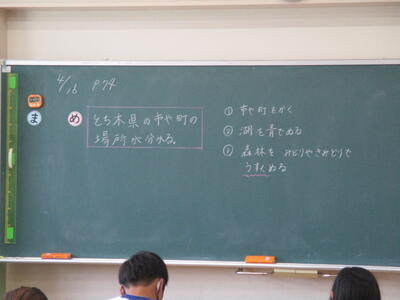 4/16 P74
ま
め
とち木県の市や町の
場所が分かる。
① 市や町をかく
② 湖を青でぬる
③ 森林を みどりやきみどりで
うすくぬる